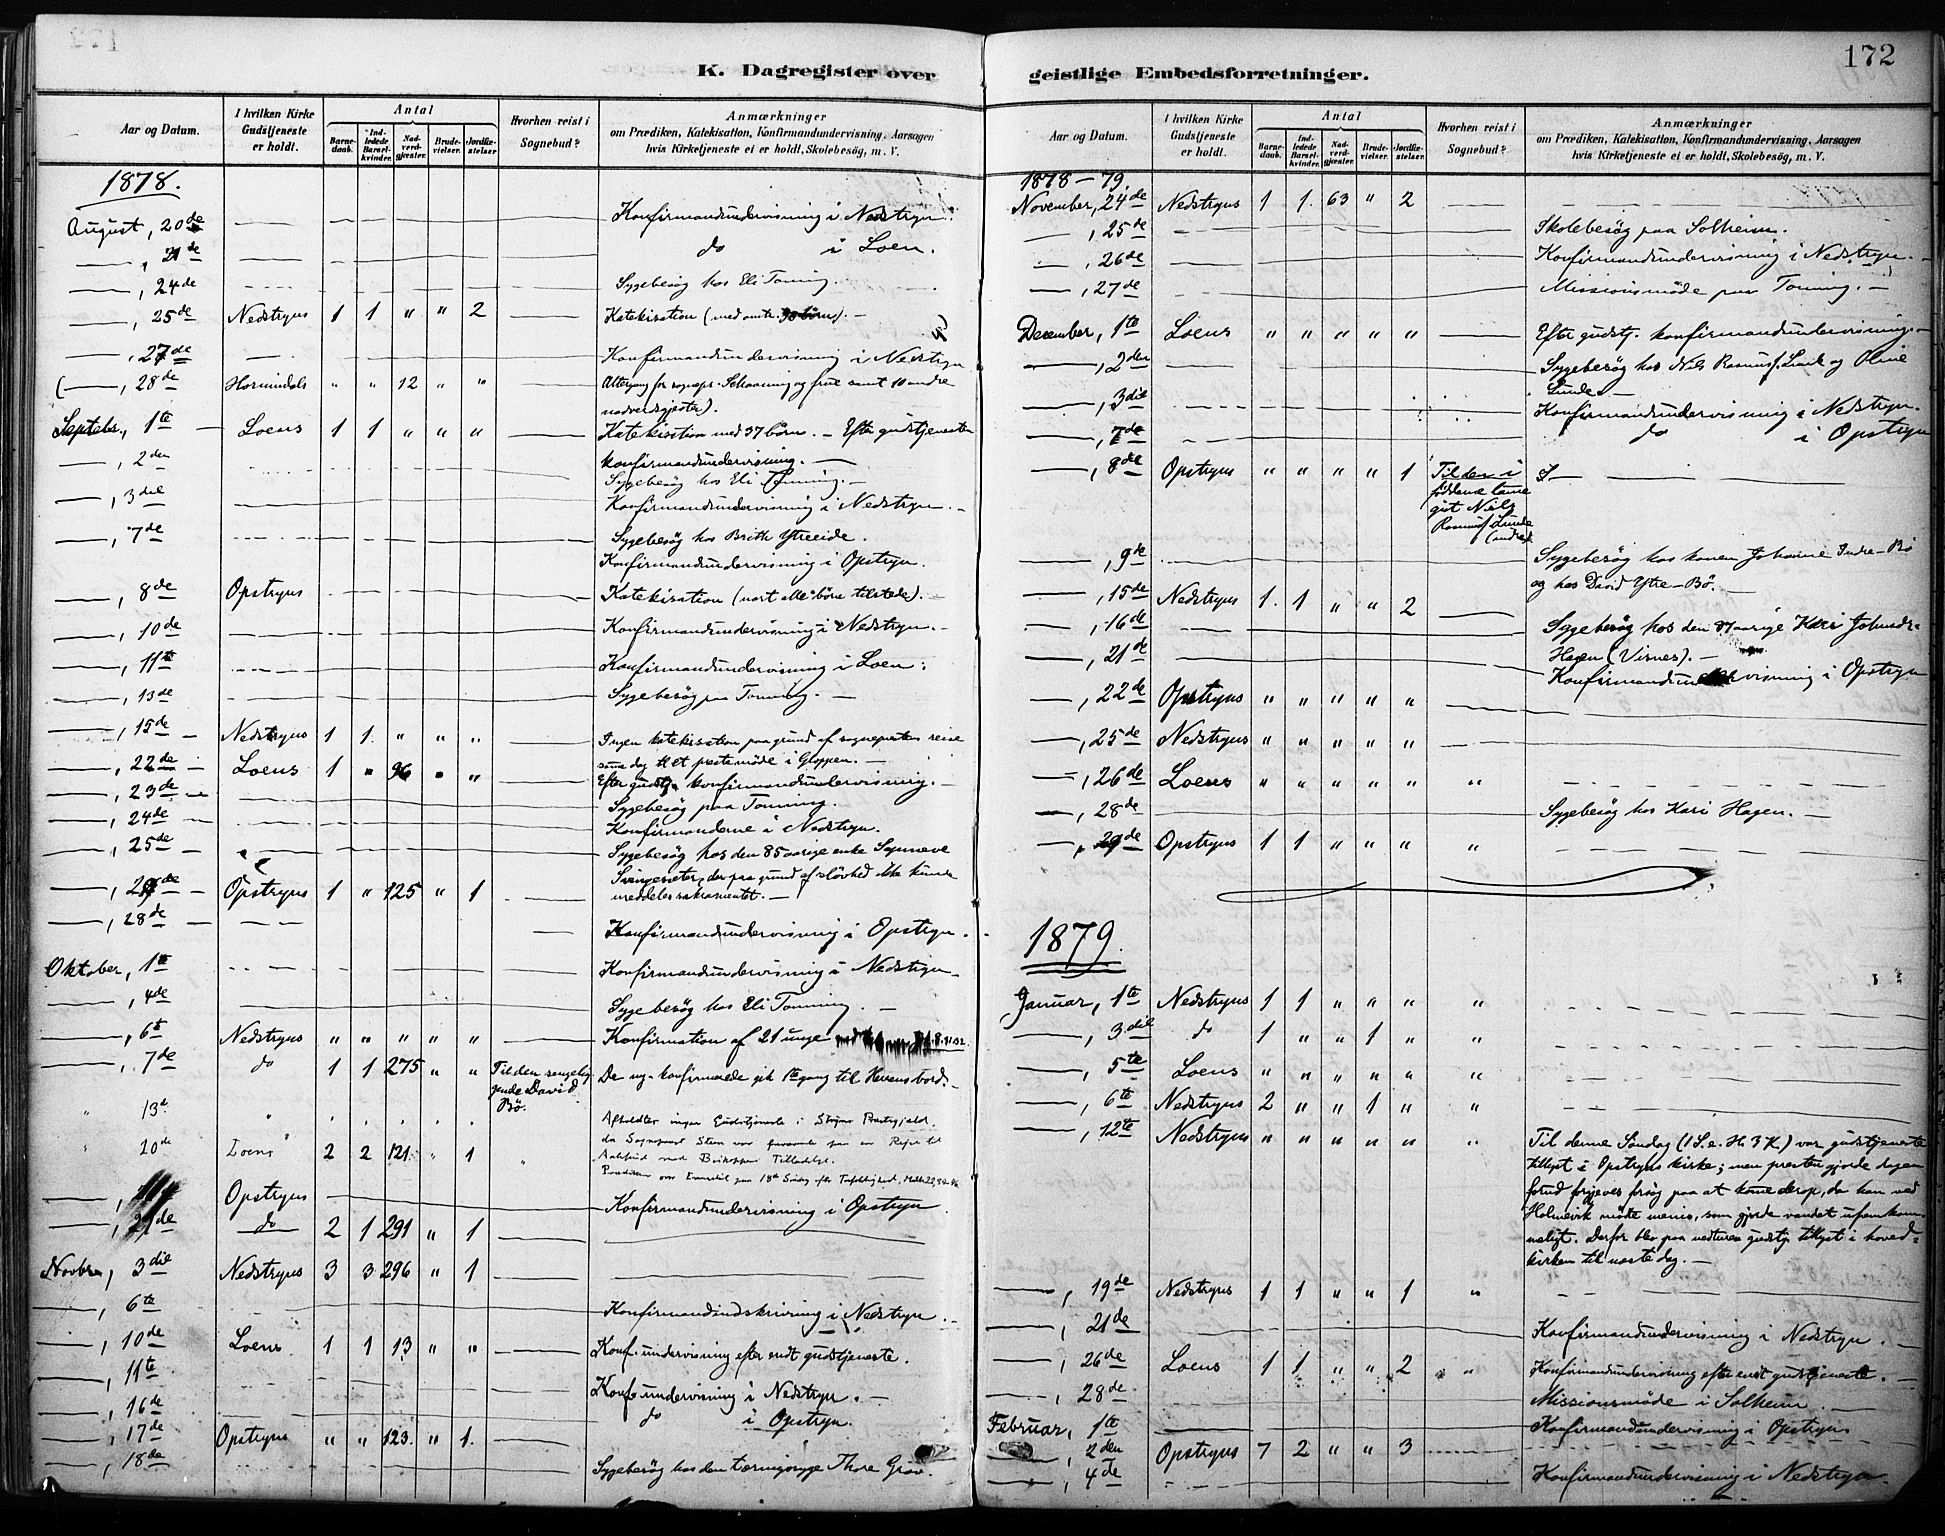 172
K. Dagregister over
Aar og Datum. | I hvilken Kirke Gudstjeneste er holdt. | Antal | Barne-daab. | Ind-ledede Barsel-kvinder. | Nad-verd-gjester. | Brude-vielser. | Jordfæ-stelser | Hvorhen reist i Sognebud? | Anmærkninger om Prædiken, Katekisation, Konfirmandundervisning, Aarsagen hvis Kirketjeneste ei er holdt, Skolebesøg, m. V.
1878.
August, 20de — Konfirmandundervisning i Nedstryn.
—, 21de — do i Loen.
—, 24de — Sygebesøg hos Eli Tonning.
—, 25de Nedstryns 1 1 " " 2 Katekisation (med omtr. 30 børn). —
—, 27de — Konfirmandundervisning i Nedstryn
(—, 28de Hornindals " " 12 " " Altergang for sognepr. Schaaning og frue samt 10 andre
nadverdgjester).
Septebr., 1te — Loens 1 1 " " " — Katekisation med 37 børn. — Efter gudstjenesten
konfirmandundervisning. —
—, 2den Sygebesøg hos Eli Tonning. —
—, 3die — Konfirmandundervisning i Nedstryn. —
—, 7de — Sygebesøg hos Brith Ytreeide.
Konfirmandundervisning i Opstryn.
—, 8de Opstryns — Katekisation (vort alle børn tilstede). —
—, 10de — Konfirmandundervisning i Nedstryn. —
—, 11te — Konfirmandundervisning i Loen.
—, 13de — Sygebesøg paa Tonning. —
—, 15de — Nedstryns 1 1 " " " — Ingen katekisation paa grund af sogneprestens reise
samme dag til et prestemøde i Gloppen. —
—, 22de — Loens 1 " 96 " " — Efter gudstj. konfirmandundervisning. —
—, 23de — Sygebesøg paa Tonning.
—, 24de — Konfirmanderne i Nedstryn.
—, 25de — Sygebesøg hos den 85 aarige enke Synneve
Svingesæter, der paa grund af sløvhed ikke kunde
meddeles sakramentet. —
—, 29de — Opstryns 1 " 125 " 1 —
—, 28de — Konfirmandundervisning i Opstryn.
Oktober, 1te — Konfirmandundervisning i Nedstryn —
—, 4de — Sygebesøg hos Eli Tonning —
—, 6te Nedstryns " " " " " Konfirmation af 21 unge
—, 7de do 1 1 275 " " Til den sengelig- De ny-konfirmerede gik 1te gang til Herrens bord. —
gende David
Bø.
" 13de " Afholdtes ingen Gudstjeneste i Stryns Prestegjeld,
da Sognepræst
" 20de Loens 2 2 121 " 1 " med Biskoppens Tilladelse.
Prædiken over Evangeliet paa 18de Søndag efter Trefoldighed, Matth 22,34-46
—, Opstryns — Konfirmandundervisning i Opstryn.
—, 27de do 2 1 291 " 1 —
Novbr., 3die Nedstryns 3 3 296 " 1 —
—, 6te — Konfirmandindskrivning i Nedstryn. —
—, 10de Loens 1 1 13 " " Konf. undervisning efter endt gudstjeneste.
—, 11te
—, 16de Konf. undervisning i Nedstryn. —
do i Opstryn.
—, 17de Opstryns " " 123 " 1.
—, 18de Sygebesøg hos den tæringssyge Thore Grov.
geistlige Embedsforretninger.
Aar og Datum. | I hvilken Kirke Gudstjeneste er holdt. | Antal | Barne-daab. | Ind-ledede Barsel-kvinder. | Nad-verd-gjester. | Brude-vielser. | Jordfæ-stelser. | Hvorhen reist i Sognebud? | Anmærkninger om Prædiken, Katekisation, Konfirmandundervisning, Aarsagen hvis Kirketjeneste ei er holdt, Skolebesøg, m. V.
1878—79.
November, 24de Nedstryns 1 1. 63 " 2 —
—, 25de — Skolebesøg paa Solheim.
—, 26de — Konfirmandundervisning i Nedstryn. —
—, 27de — Missionsmøde paa Tonning. —
December, 1te Loens " " " " " — Efter gudstj. konfirmandundervisning. —
—, 2den — Sygebesøg hos Nils Rasmus. Lunde og Oline
Lunde. —
—, 3die — Konfirmandundervisning i Nedstryn.
—, 7de — do i Opstryn
—, 8de Opstryns " " " " 1 Til den i
Nils
Rasmus. Lunde
(indre)
—, 9de — Sygebesøg hos konen Johanne Indre-Bø
og hos David Ytre-Bø. —
—, 15de Nedstryns 1. 1 " " 2 —
—, 16de — Sygebesøg hos den 87 aarige Kari Johnsdr.
Hagen (Visnes). —
—, 21de — Konfirmandundervisning i Opstryn
—, 22de Opstryns " " " " " —
—, 25de Nedstryns " " " " " —
—, 26de Loens " " " " " "
—, 28de — Sygebesøg hos Kari Hagen. —
—, 29de Opstryns 1 1 " " " "
1879.
Januar, 1te Nedstryns 1 1 " " " "
—, 3die do 1 " " 1 " "
—, 5te Loens " " " " " "
—, 6te Nedstryns 2 " " 1 " "
—, 12te Nedstryns " " " " " " Til denne Søndag (1 S. e. H. 3 K.) var gudstjeneste
tillyst i Opstryns kirke; men presten gjorde dagen
forud forgjeves forsøg paa at komme derop, da han ved
Holmevik mødte menis, som gjorde vandet ufremkom-
meligt. Derfor blev paa nedturen gudstj. tillyst i hoved-
kirken til næste dag. —
—, 19de Nedstryns 1 1 " " 1 "
—, 21de — Konfirmandundervisning i Nedstryn. —
—, 26de Loens 1 1 " " 2 " Konfirmandundervisning efter endt gudstjeneste. —
—, 28de — Missionsmøde i Solheim. —
Februar, 1te — Konfirmandundervisning i Opstryn
—, 2den Opstryns 7 2 " " 3
—, 4de — Konfirmandundervisning i Nedstryn.